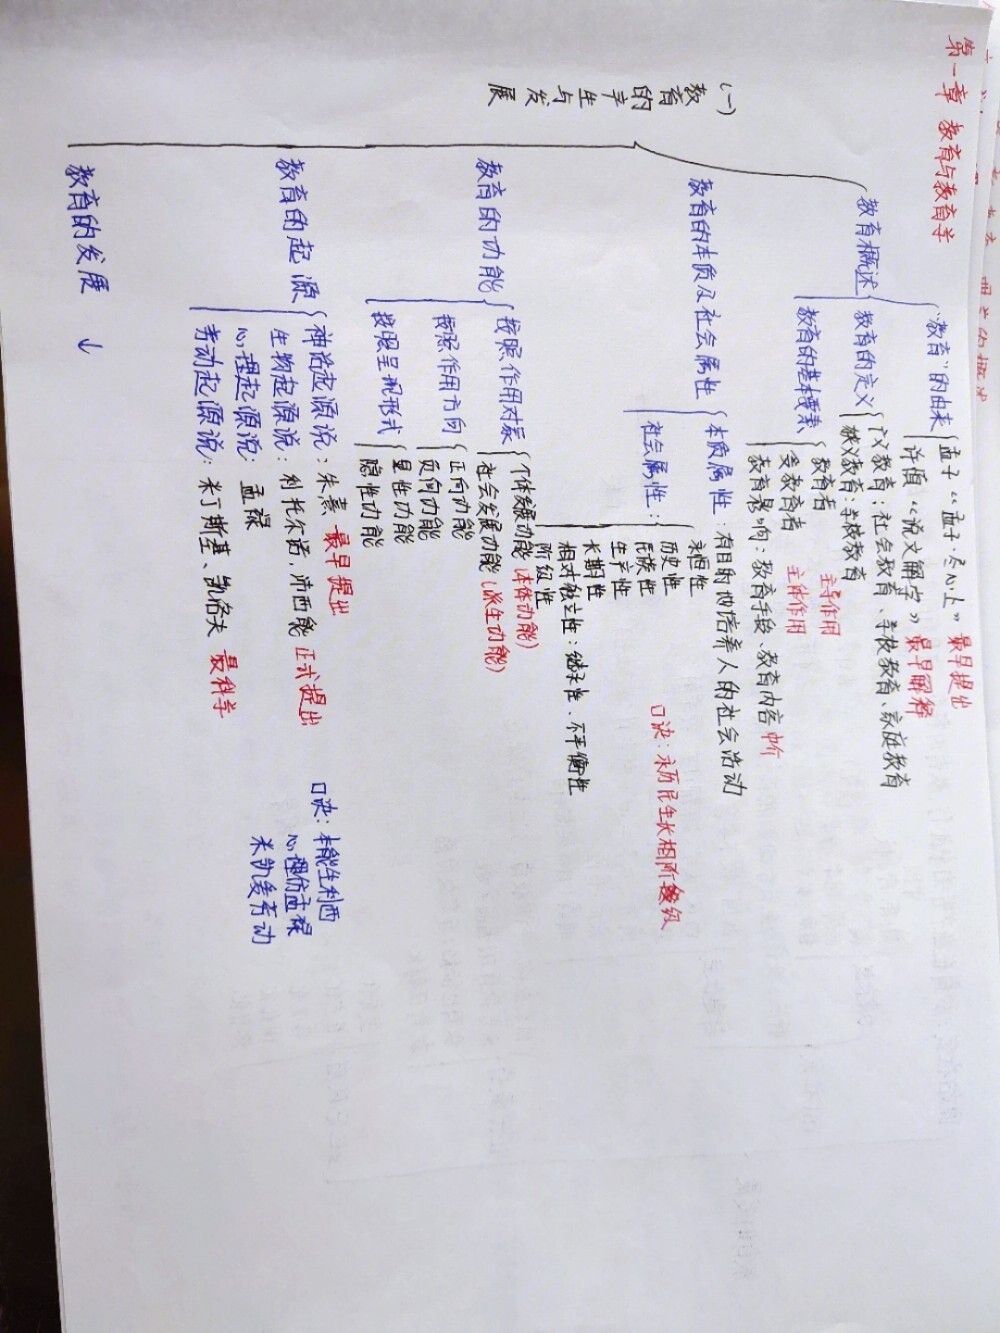 第一章 教育与教育学
(一)教育的产生与发展
教育概述
"教育"的由来
孟子《孟子·尽心上》 最早提出
许慎《说文解字》 最早解释
教育的定义
广义教育：社会教育、学校教育、家庭教育
狭义教育：学校教育
教育的基本要素
教育者 主导作用
受教育者 主体作用
教育影响：教育手段、教育内容 中介
教育的本质及社会属性
本质属性：有目的地培养人的社会活动
社会属性：
永恒性
历史性
民族性
生产性
长期性
相对独立性：继承性、不平衡性
阶级性
口诀：永历民生长相阶级
教育的功能
按照作用对象
个体发展功能(本体功能)
社会发展功能(派生功能)
按照作用方向
正向功能
负向功能
按照呈现形式
显性功能
隐性功能
教育的起源
神话起源说：朱熹 最早提出
生物起源说：利托尔诺，沛西能 正式提出
心理起源说：孟禄
劳动起源说：米丁斯基、凯洛夫 最科学
口诀：本能生利西
心理仿孟禄
米凯爱劳动
教育的发展 ↓